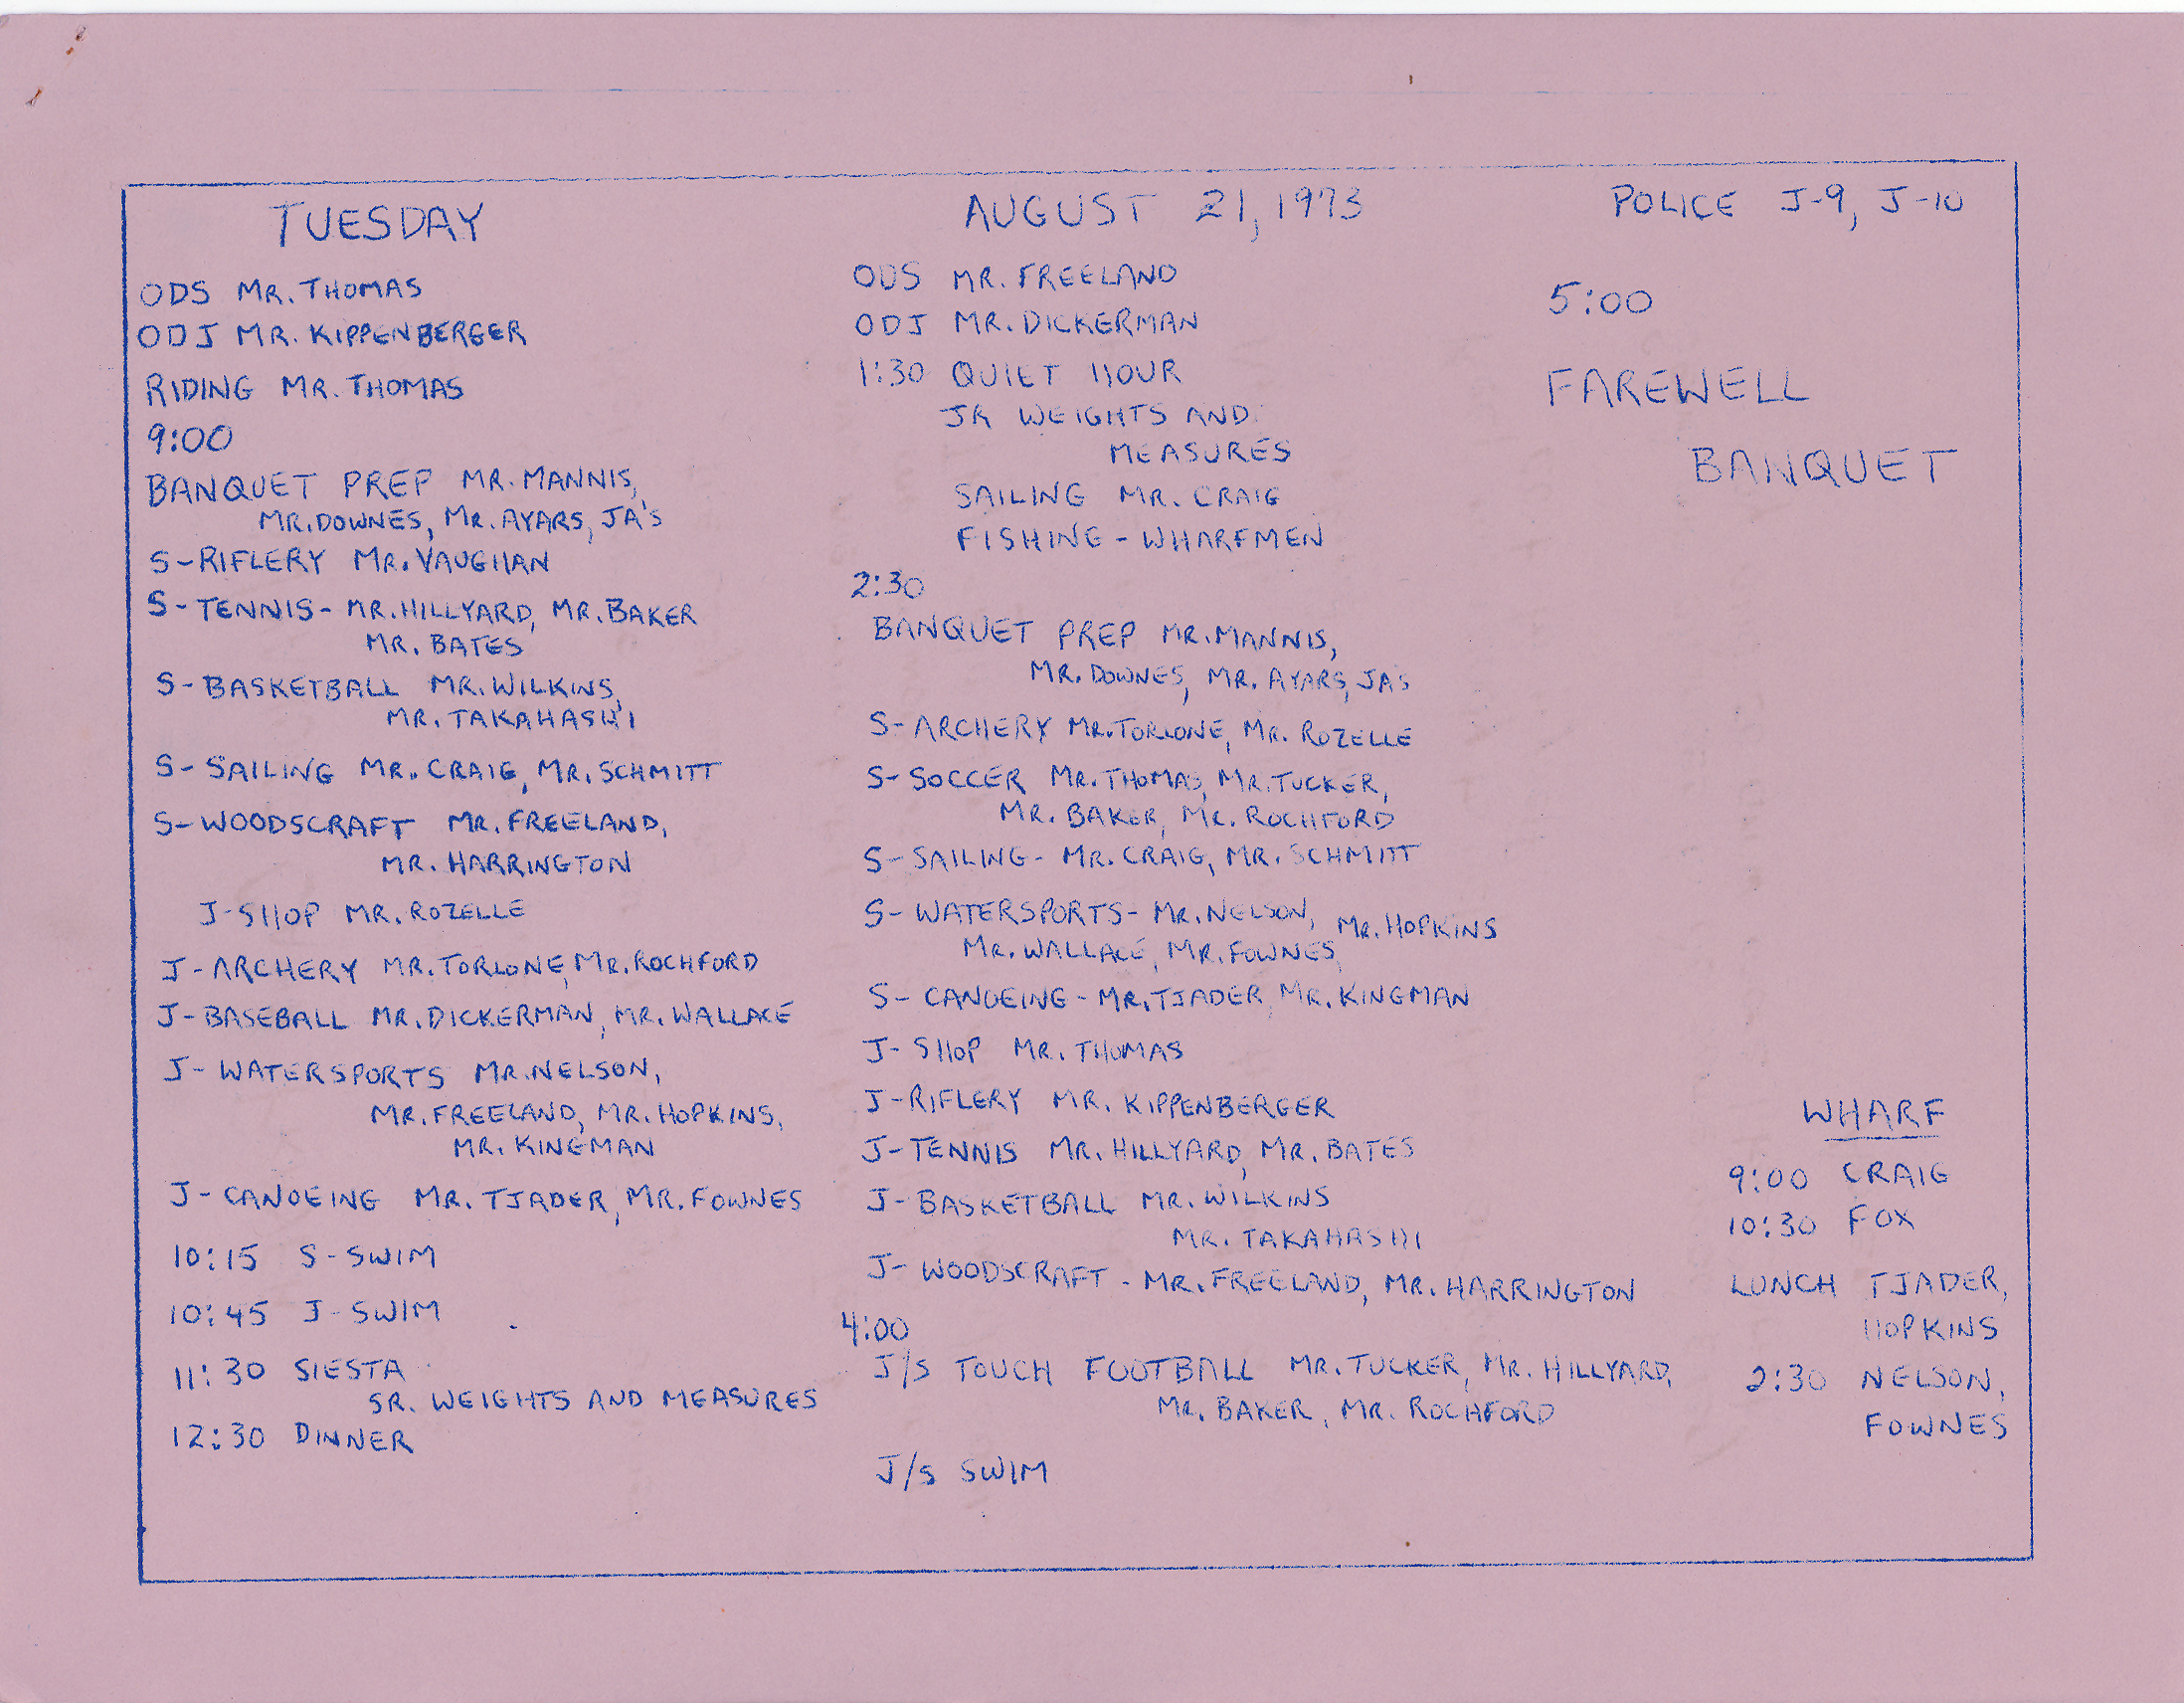 TUESDAY
ODS MR. THOMAS
ODJ MR. KIPPENBERGER
RIDING MR. THOMAS
9:00
BANQUET PREP MR. MANNIS,
MR. DOWNES, MR. AYARS, JA'S
S-RIFLERY MR. VAUGHAN
S-TENNIS- MR. HILLYARD, MR. BAKER
MR. BATES
S-BASKETBALL MR. WILKINS,
MR. TAKAHASHI
S- SAILING MR. CRAIG, MR. SCHMITT
S-WOODSCRAFT MR. FREELAND,
MR. HARRINGTON
J-SHOP MR. ROZELLE
J-ARCHERY MR. TORLONE, MR. ROCHFORD
J-BASEBALL MR. DICKERMAN, MR. WALLACE
J- WATERSPORTS MR. NELSON,
MR. FREELAND, MR. HOPKINS,
MR. KINGMAN
J-CANOEING MR. TJADER, MR. FOWNES
10:15 S-SWIM
10:45 J-SWIM
11:30 SIESTA
SR. WEIGHTS AND MEASURES
12:30 DINNER
AUGUST 21, 1973
ODS MR. FREELAND
ODJ MR. DICKERMAN
1:30 QUIET HOUR
JR WEIGHTS AND
MEASURES
SAILING MR. CRAIG
FISHING - WHARFMEN
2:30
BANQUET PREP MR. MANNIS,
MR. DOWNES, MR. AYARS, JA'S
S-ARCHERY MR. TORLONE, MR. ROZELLE
S-SOCCER MR. THOMAS, MR. TUCKER,
MR. BAKER, MR. ROCHFORD
S-SAILING- MR. CRAIG, MR. SCHMITT
S-WATERSPORTS- MR. NELSON, MR. HOPKINS
MR. WALLACE, MR. FOWNES,
S-CANOEING-MR. TJADER, MR. KINGMAN
J-SHOP MR. THOMAS
J-RIFLERY MR. KIPPENBERGER
J-TENNIS MR. HILLYARD, MR. BATES
J-BASKETBALL MR. WILKINS
MR. TAKAHASHI
J- WOODSCRAFT - MR. FREELAND, MR. HARRINGTON
4:00
J/S TOUCH FOOTBALL MR. TUCKER, MR. HILLYARD,
MR. BAKER, MR. ROCHFORD
J/S SWIM
POLICE J-9, J-10
5:00
FAREWELL
BANQUET
WHARF
9:00 CRAIG
10:30 FOX
LUNCH TJADER,
HOPKINS
2:30 NELSON,
FOWNES